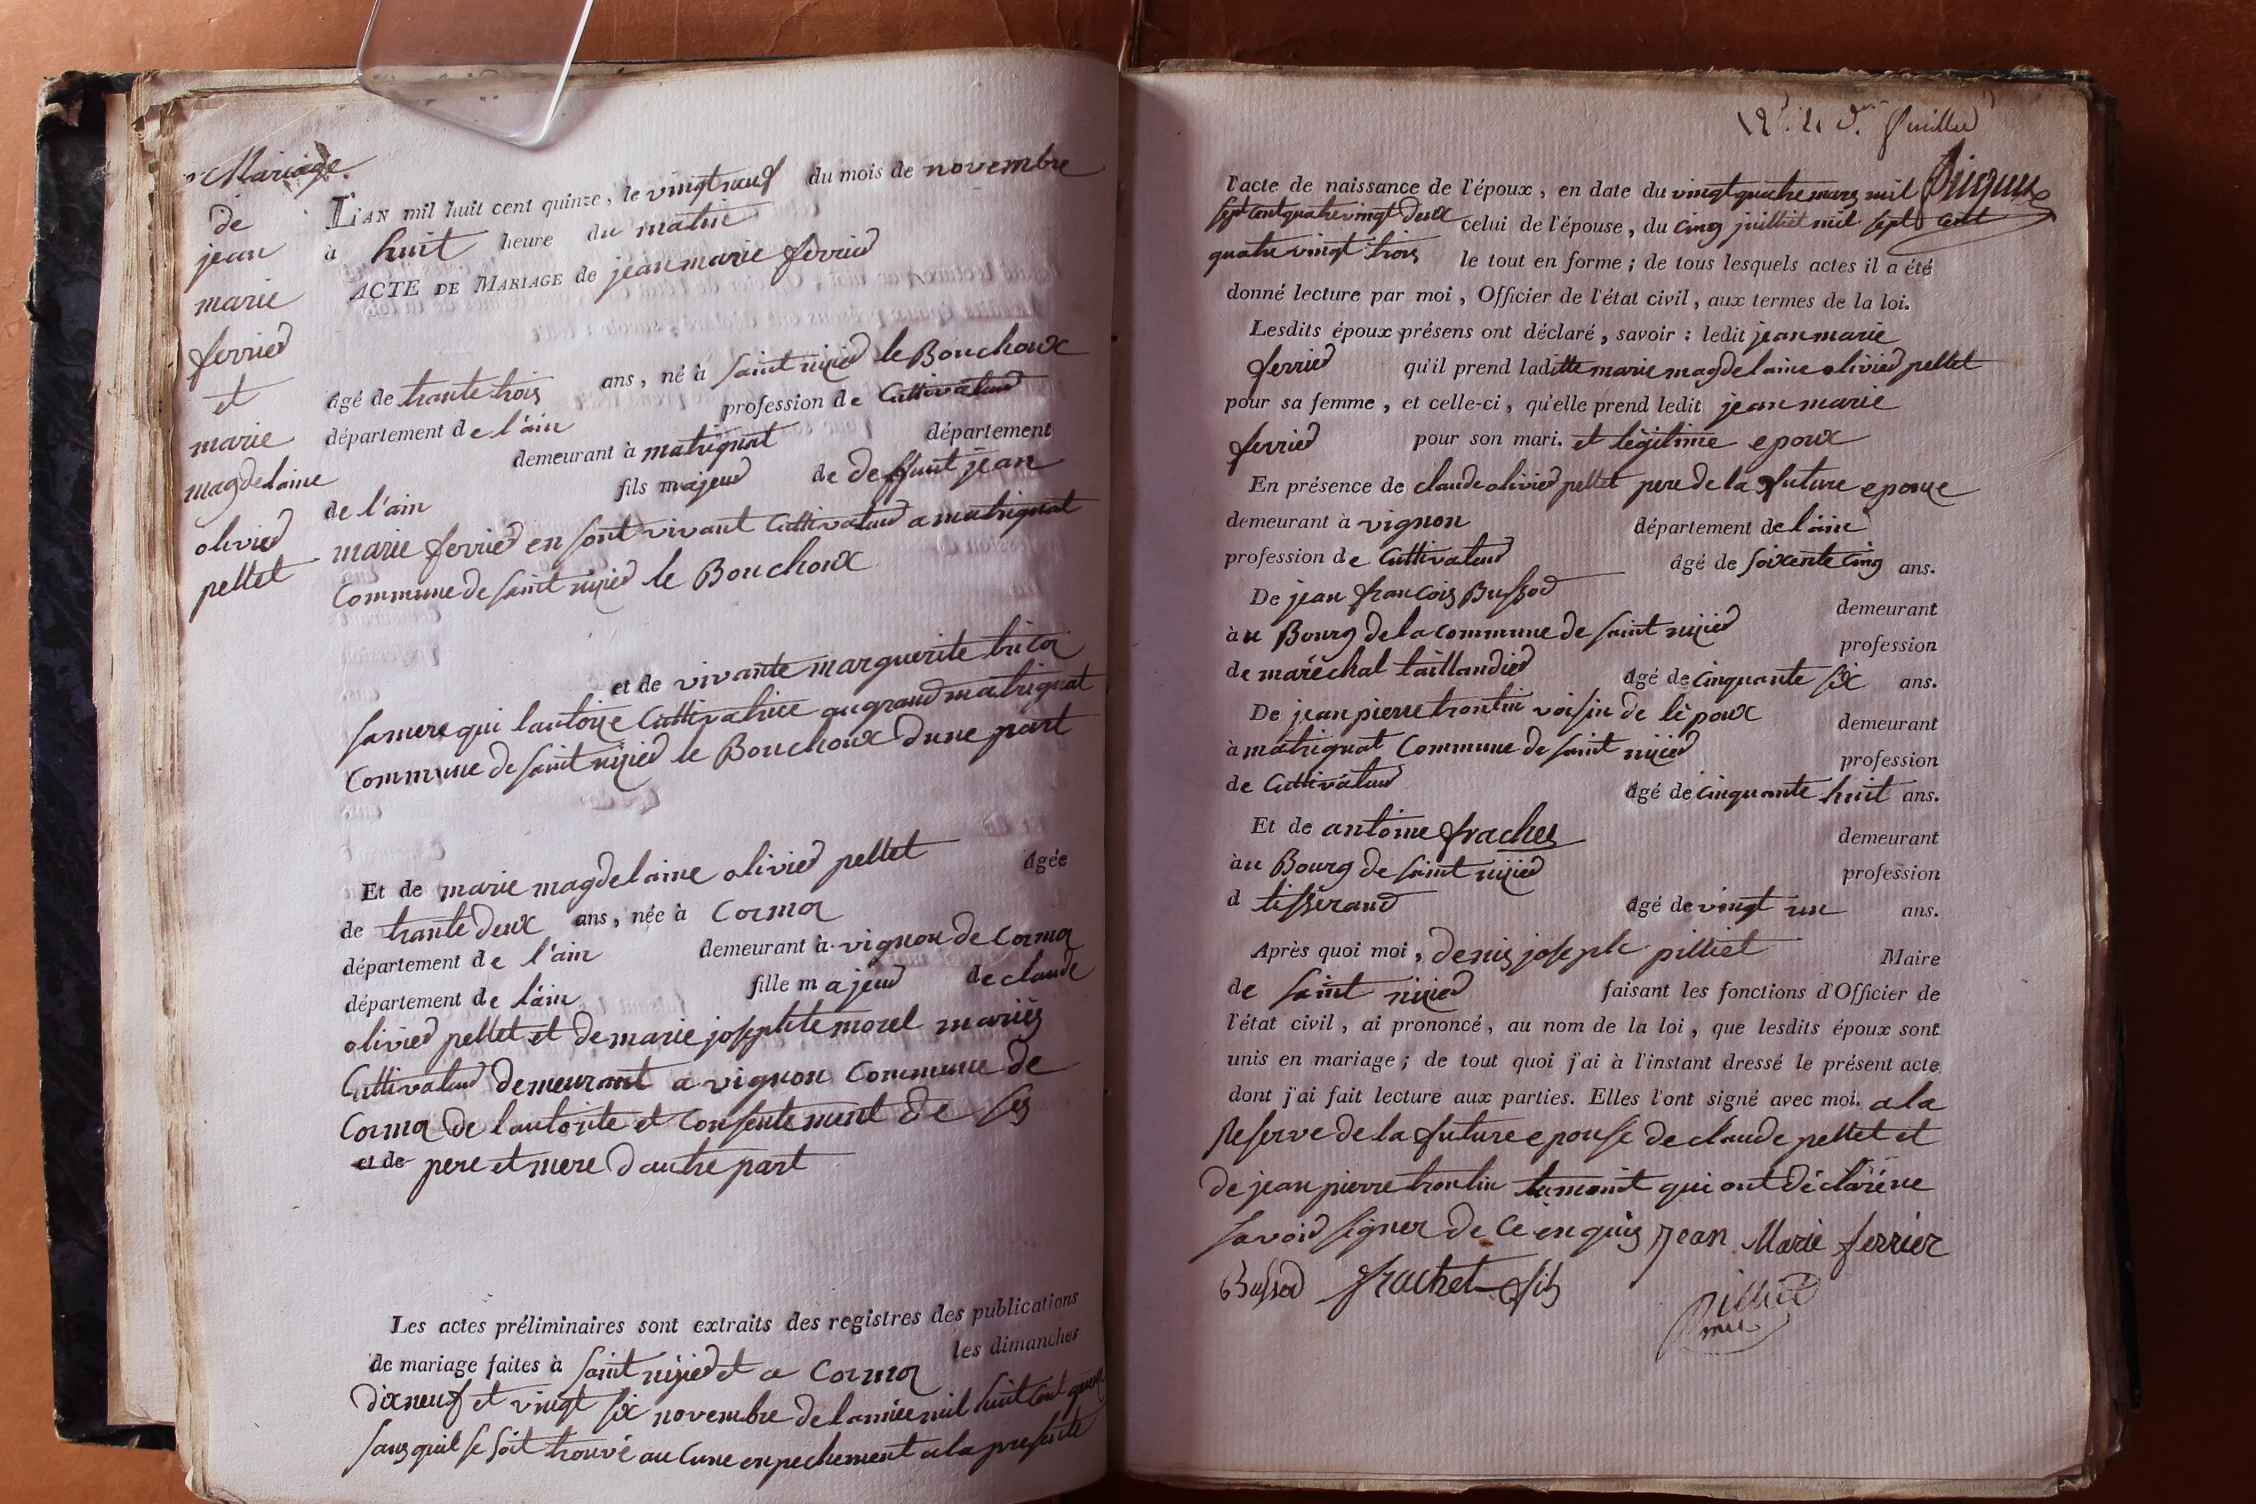 Mariage
de
jean
marie
ferried
et
marie
magdelaine
olivied
pellet
L'AN mil huit cent quinze, le vingt neuf du mois de novembre
à huit heure du matin
ACTE DE MARIAGE de jean marie ferried
âgé de trante trois ans, né à saint nizied le Bouchoux
département de l'ain profession de Cultivateud
demeurant à matrignat département
de l'ain fils majeud de deffunt jean
marie ferried en sont vivant Cultivateud a matrignat
Commune de saint nizied le Bouchoux
et de vivante marguerite tricoz
sa mere qui lautorize Cultivatrice au grand matrignat
Commune de saint nizied le Bouchoux dune part
Et de marie magdelaine olivied pellet âgée
de trante deux ans, née à Cormoz
département de l'ain demeurant à vignon de Cormoz
département de lain fille majeud de claude
olivied pellet et de marie josephte morel mariés
Cultivateud demeurant a vignon Commune de
Cormoz de lautorite et Consentement de ses
et de pere et mere dautre part
Les actes préliminaires sont extraits des registres des publications
de mariage faites à saint nizied et a Cormoz les dimanches
dix neuf et vingt six novembre de lannée mil huit cent quinze
sans quil se soit trouvé aucune enpechement a la presente
l'acte de naissance de l'époux, en date du vingt quatre mars mil
sept cent quatre vingt deux celui de l'épouse, du cinq juilliet mil sept cent
quatre vingt trois le tout en forme; de tous lesquels actes il a été
donné lecture par moi, Officier de l'état civil, aux termes de la loi.
Lesdits époux présens ont déclaré, savoir: ledit jean marie
ferried qu'il prend laditte marie magdelaine olivied pellet
pour sa femme, et celle-ci, qu'elle prend ledit jean marie
ferried pour son mari. et légitime epoux
En présence de claude olivied pellet pere de la future epouze
demeurant à vignon département de l'ain
profession de Cultivateud âgé de soixente cinq ans.
De jean francois Bussod demeurant
à u Bourg de la commune de saint nizied profession
de maréchal taillandied âgé de cinquante six ans.
De jean pierre trontin voisin de lépoux demeurant
à matrignat Commune de saint nizied profession
de Cultivateud âgé de cinquante huit ans.
Et de antoine frachet demeurant
àu Bourg de saint nizied profession
d tisserand âgé de vingt un ans.
Après quoi moi, denis joseph pilliet Maire
de saint nizied faisant les fonctions d'Officier de
l'état civil, ai prononcé, au nom de la loi, que lesdits époux sont
unis en mariage; de tout quoi j'ai à l'instant dressé le présent acte
dont j'ai fait lecture aux parties. Elles l'ont signé avec moi. a la
Reserve de la future epouse de claude pellet et
de jean pierre trontin temoint qui ont déclaré ne
savoid signer de ce enquis Jean Marie ferrier
Bussod frachet fils
pilliet